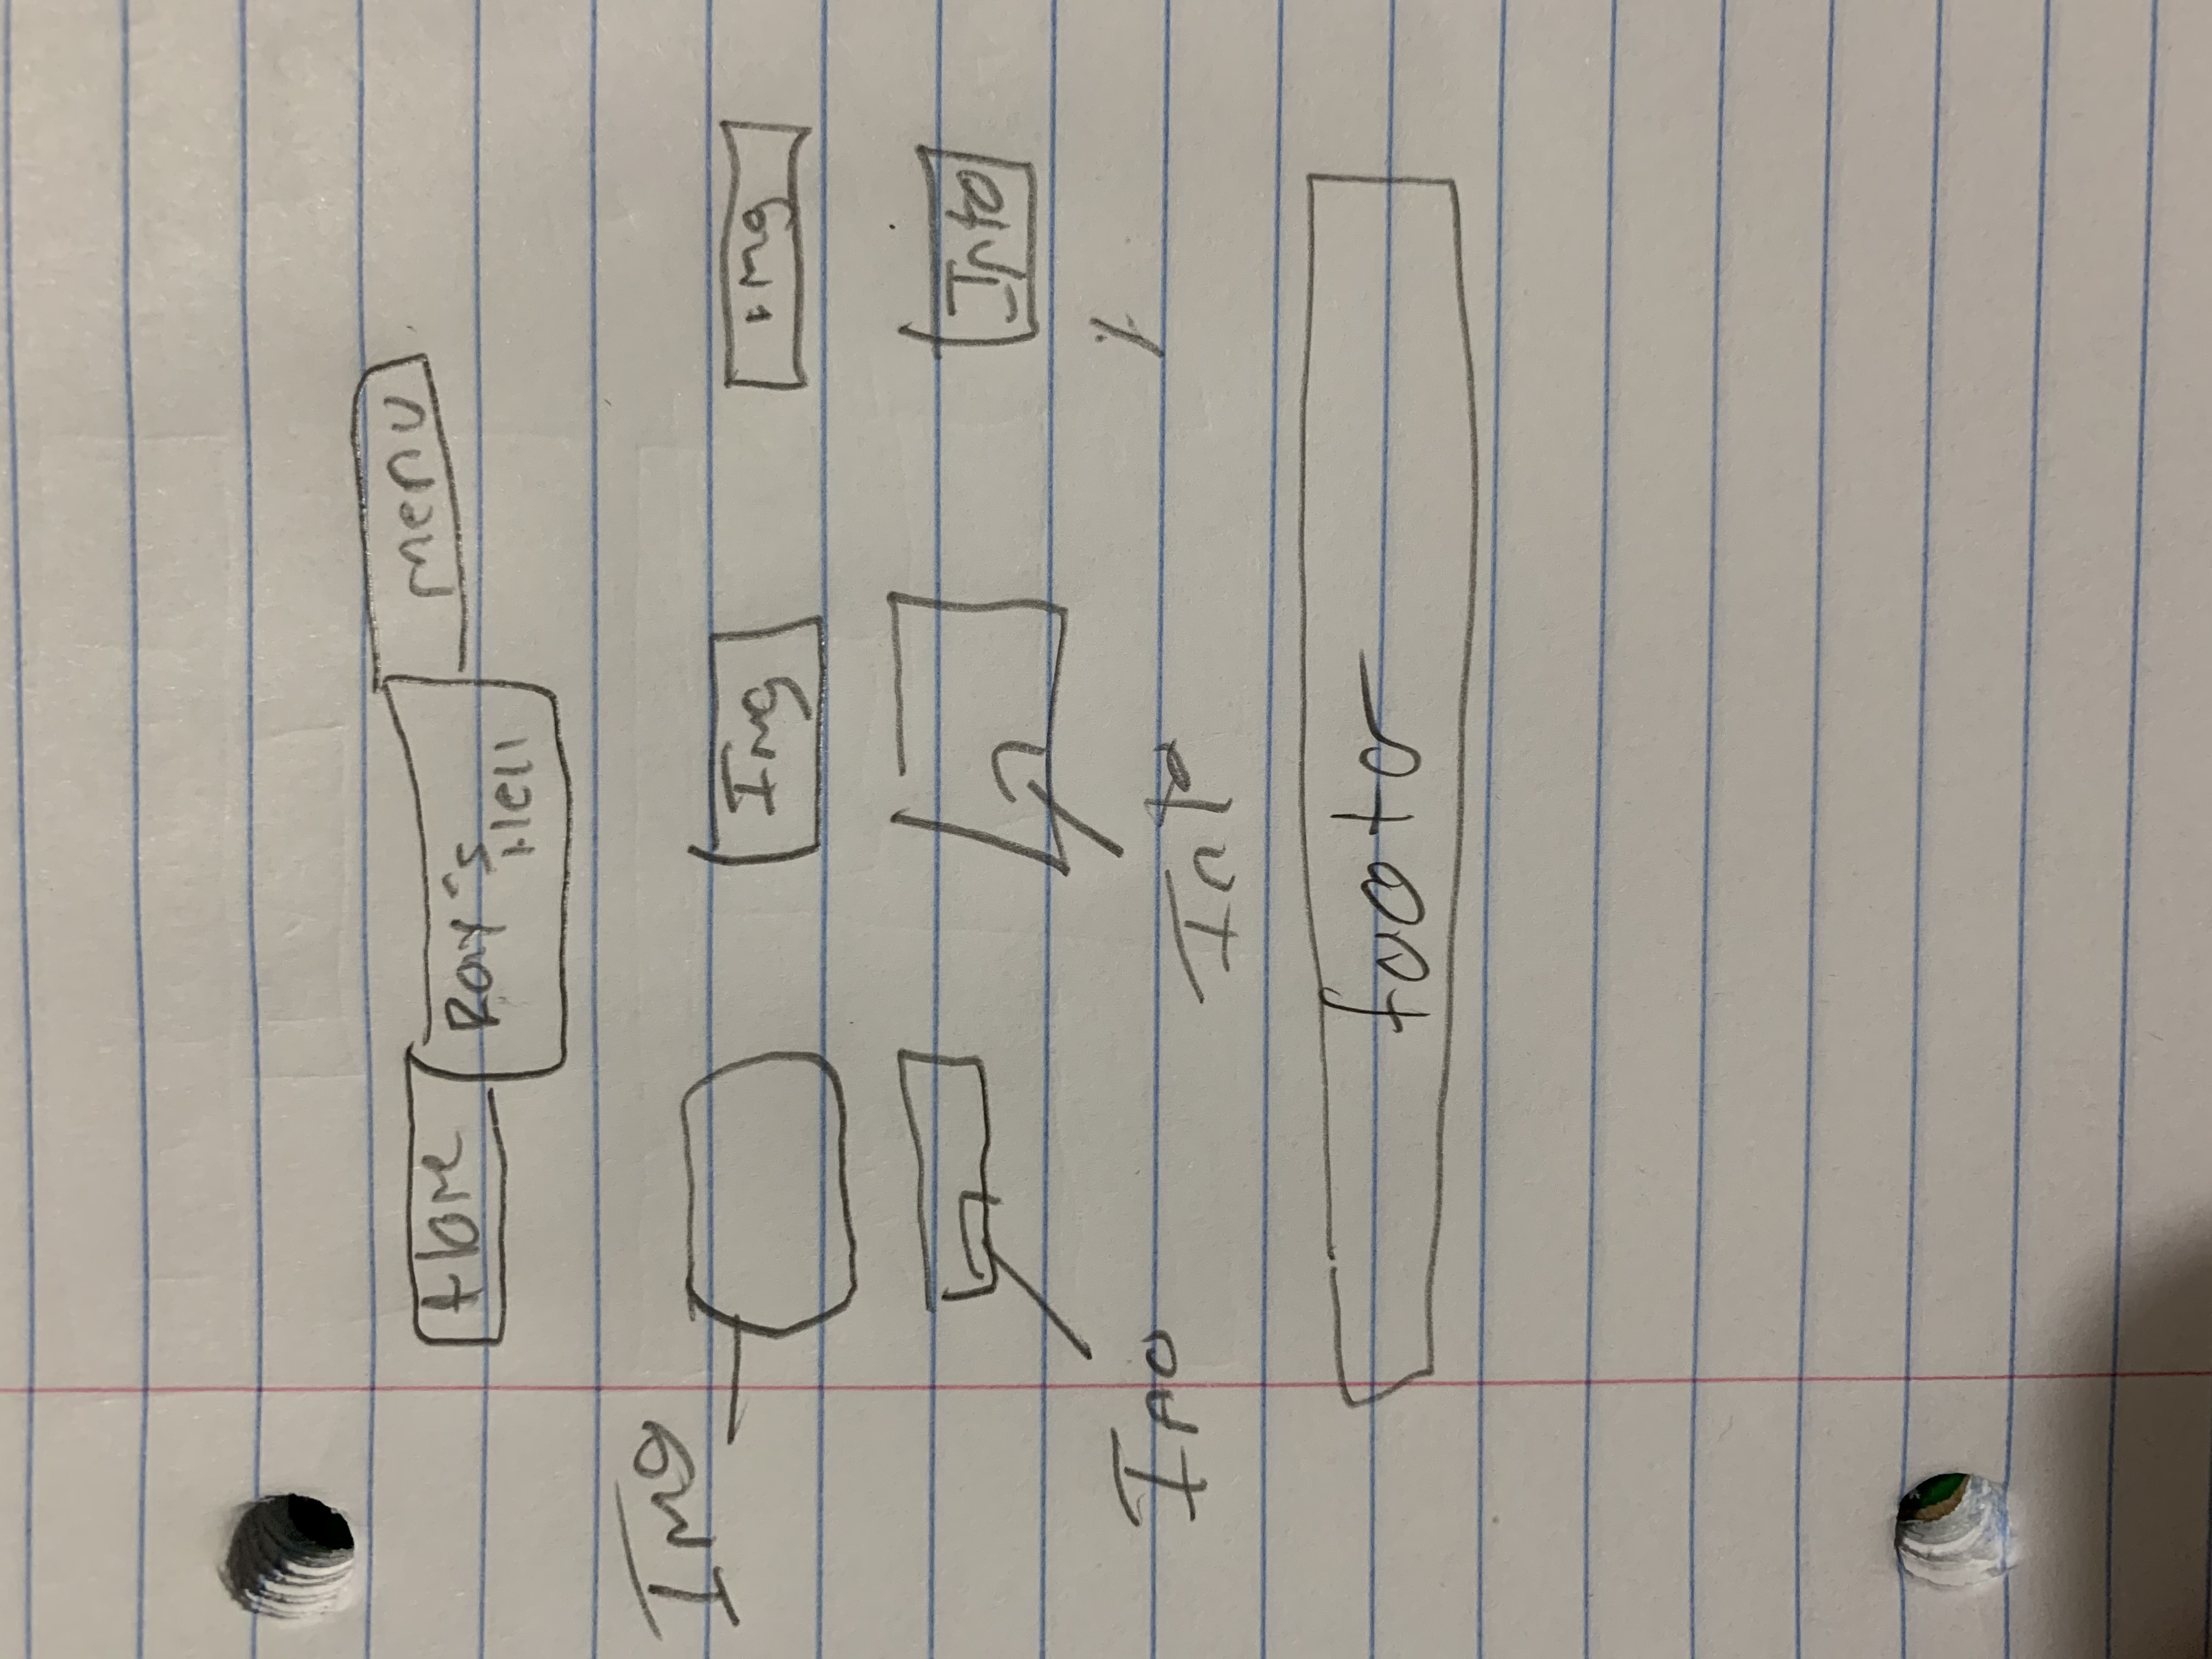 Home
Ray's
Hell
menu
Img
Img
img
Info
Ino
Info
footer